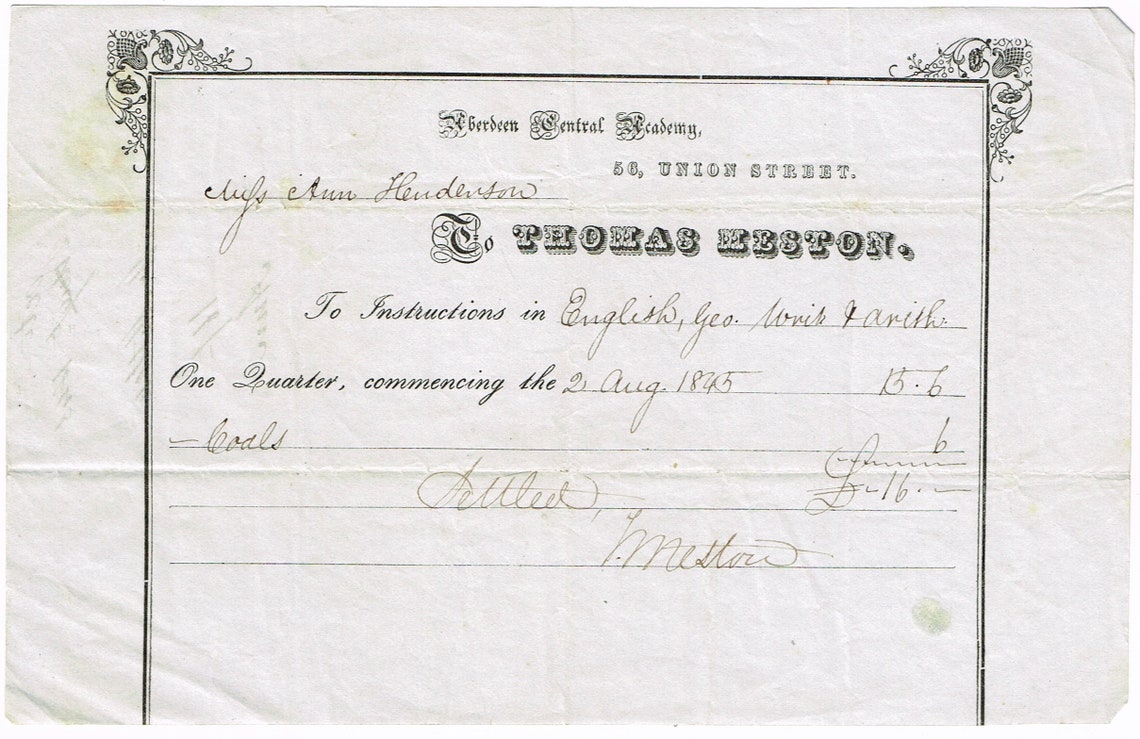 Aberdeen Central Academy,
56, UNION STREET.
Miss Ann Henderson
To THOMAS MESTON.
To Instructions in English, Geo. Writ & Arith.
One Quarter, commencing the 2 Aug. 1845 15.6
— Coals 6
£ - 16. -
Settled,
T. Meston